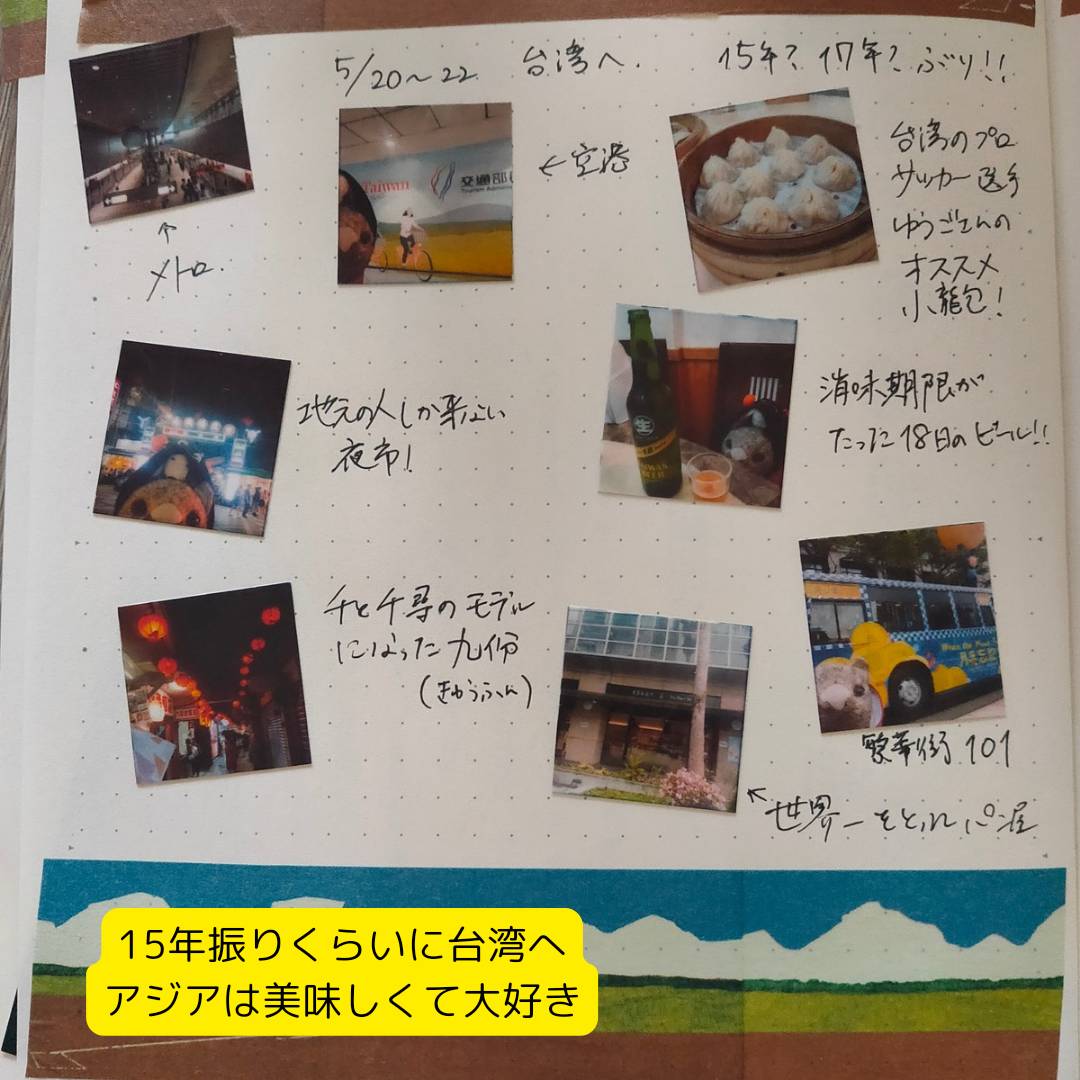 5/20〜22 台湾へ. 15年? 17年? ぶり!!
↑
メトロ.
Taiwan
交通部
←空港
台湾のプロ
サッカー選手
ゆうごさんの
オススメ
小龍包!
地元の人しか来ない
夜市!
生
消味期限が
たった18日のビール!!
千と千尋のモデル
になった九份
(きゅうふん)
繁華街 101
↖世界一をとれパン屋
15年振りくらいに台湾へ
アジアは美味しくて大好き